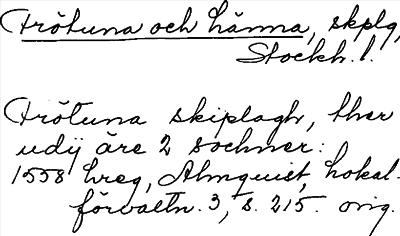 Frötuna och Länna, skplg,
Stockh. l.
Frötuna skiplagh, ther
udij äre 2 sochner:
1558 hreg, Almquist, Lokal-
förvaltn. 3, s. 215. orig.